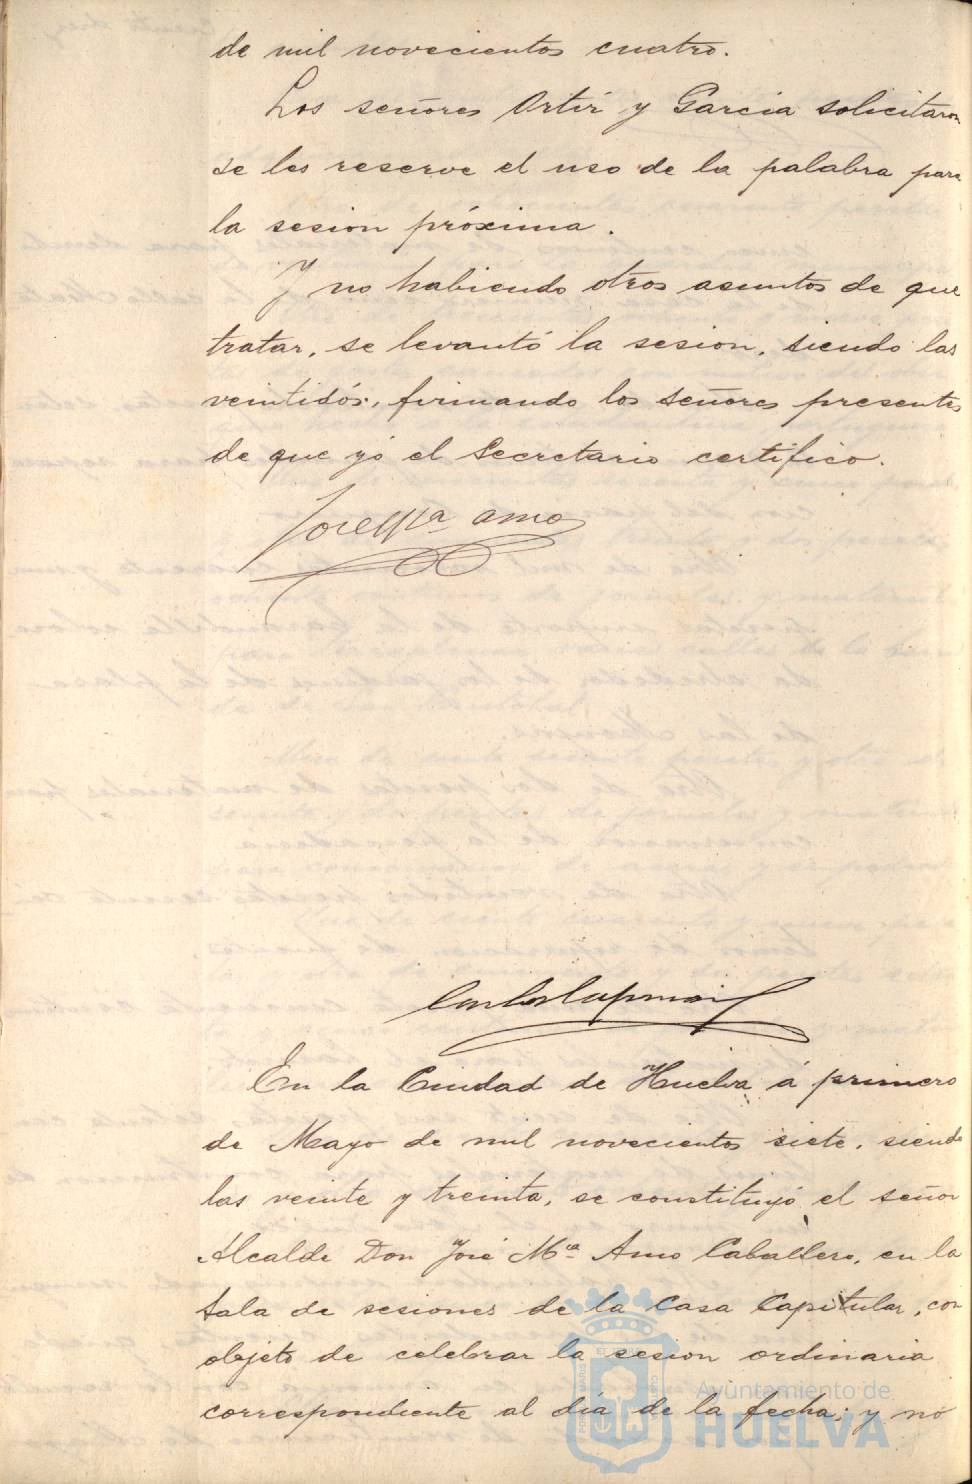 de mil novecientos cuatro.
Los señores Ortiz y Garcia solicitaron
se les reserve el uso de la palabra para
la sesion próxima.
Y no habiendo otros asuntos de que
tratar, se levantó la sesion, siendo las
veintidós, firmando los señores presentes
de que yó el Secretario certifico.
José Mª Amo
En la Ciudad de Huelva á primero
de Mayo de mil novecientos siete, siendo
las veinte y treinta, se constituyó el señor
Alcalde Don José Mª Amo Caballero, en la
Sala de sesiones de la Casa Capitular, con
objeto de celebrar la sesion ordinaria
correspondiente al día de la fecha; y no
Ayuntamiento de
HUELVA